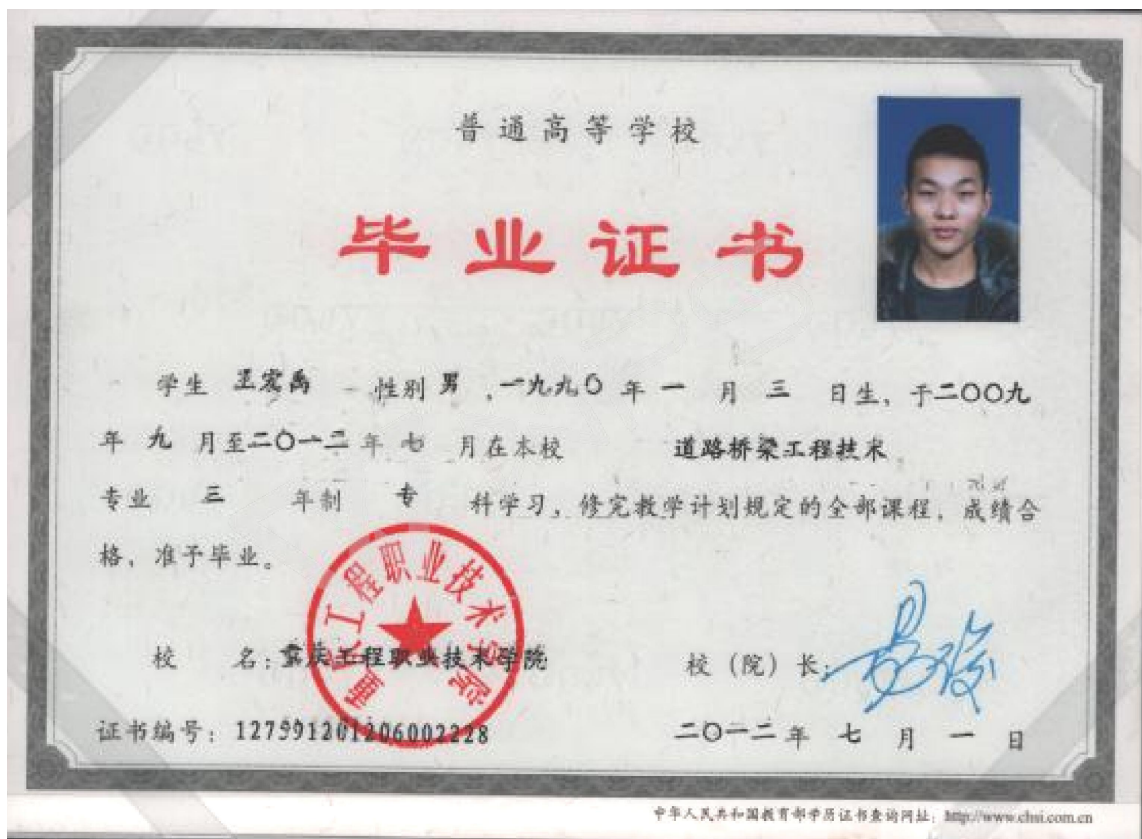 普通高等学校
毕业证书
学生 王宏禹 性别 男 ,一九九〇 年 一 月 三 日生, 于二〇〇九
年 九 月至二〇一二年 七 月在本校 道路桥梁工程技术
专业 三 年制 专 科学习, 修完教学计划规定的全部课程, 成绩合
格, 准予毕业。
重庆工程职业技术学院
校 名: 重庆工程职业技术学院 校(院)长:
证书编号: 127591201206002228 二〇一二年 七 月 一 日
中华人民共和国教育部学历证书查询网址: http://www.chsi.com.cn